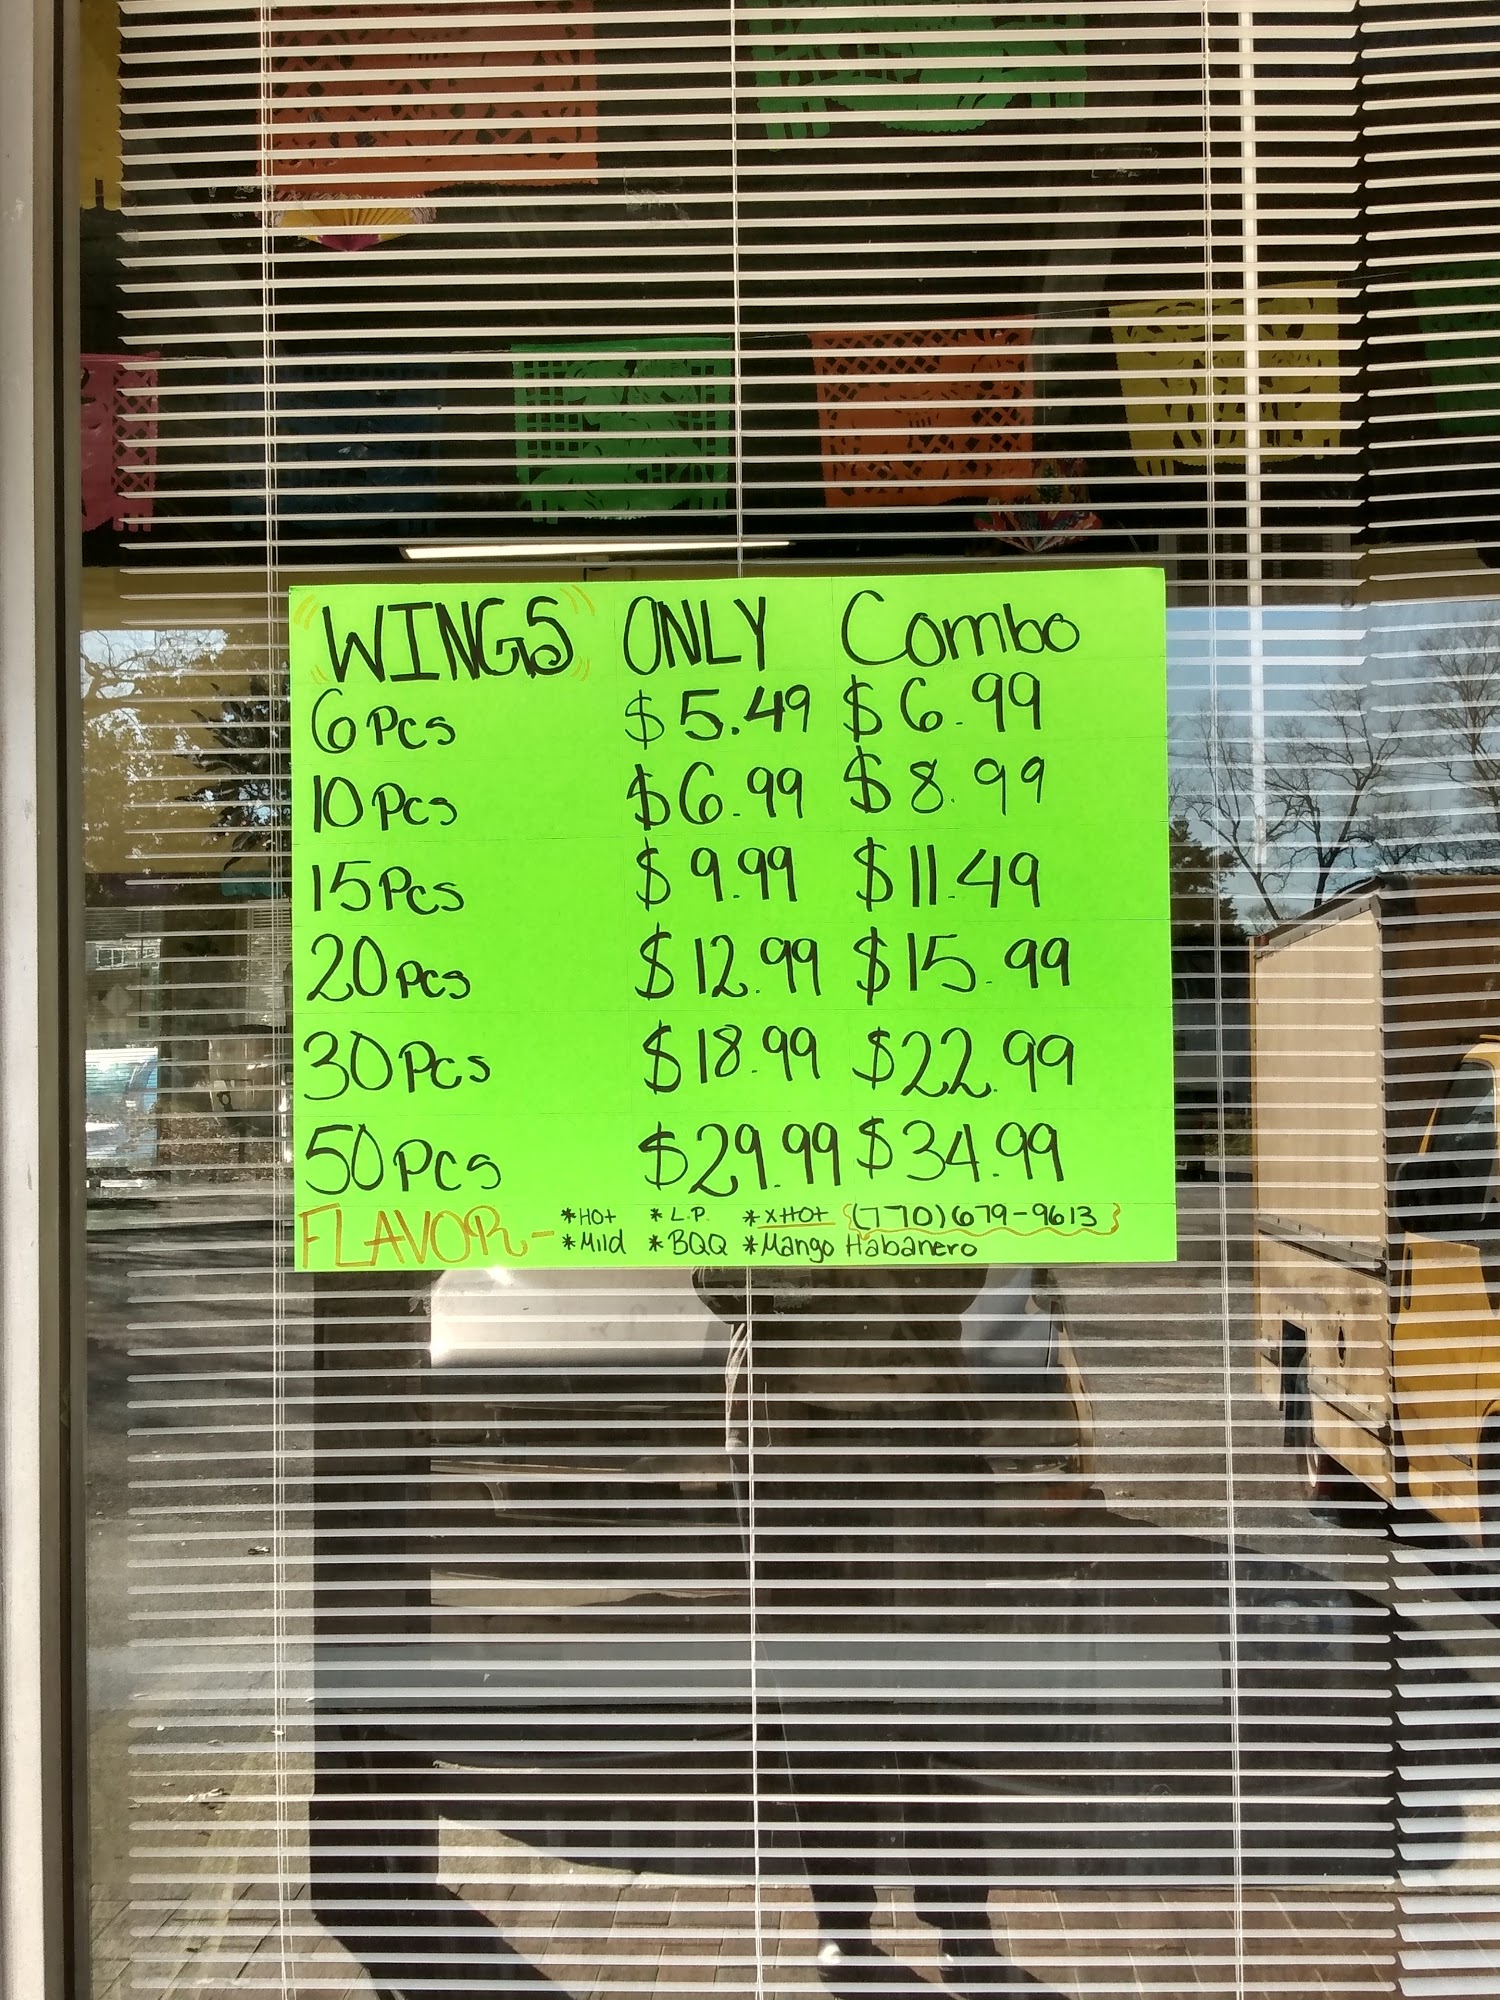 "WINGS" ONLY Combo
6Pcs $5.49 $6.99
10Pcs $6.99 $8.99
15Pcs $9.99 $11.49
20Pcs $12.99 $15.99
30Pcs $18.99 $22.99
50Pcs $29.99 $34.99
FLAVOR- *HOt *L.P. *XHOt {(770)679-9613}
*Mild *BQQ *Mango Habanero